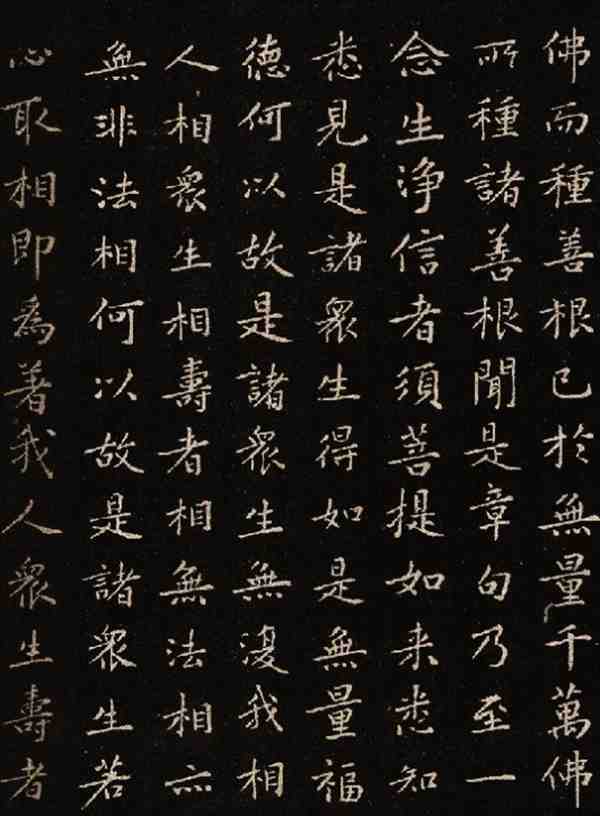 佛而種善根已於無量千萬佛
所種諸善根聞是章句乃至一
念生淨信者須菩提如来悉知
悉見是諸衆生得如是無量福
德何以故是諸衆生無復我相
人相衆生相壽者相無法相亦
無非法相何以故是諸衆生若
心取相即為著我人衆生壽者